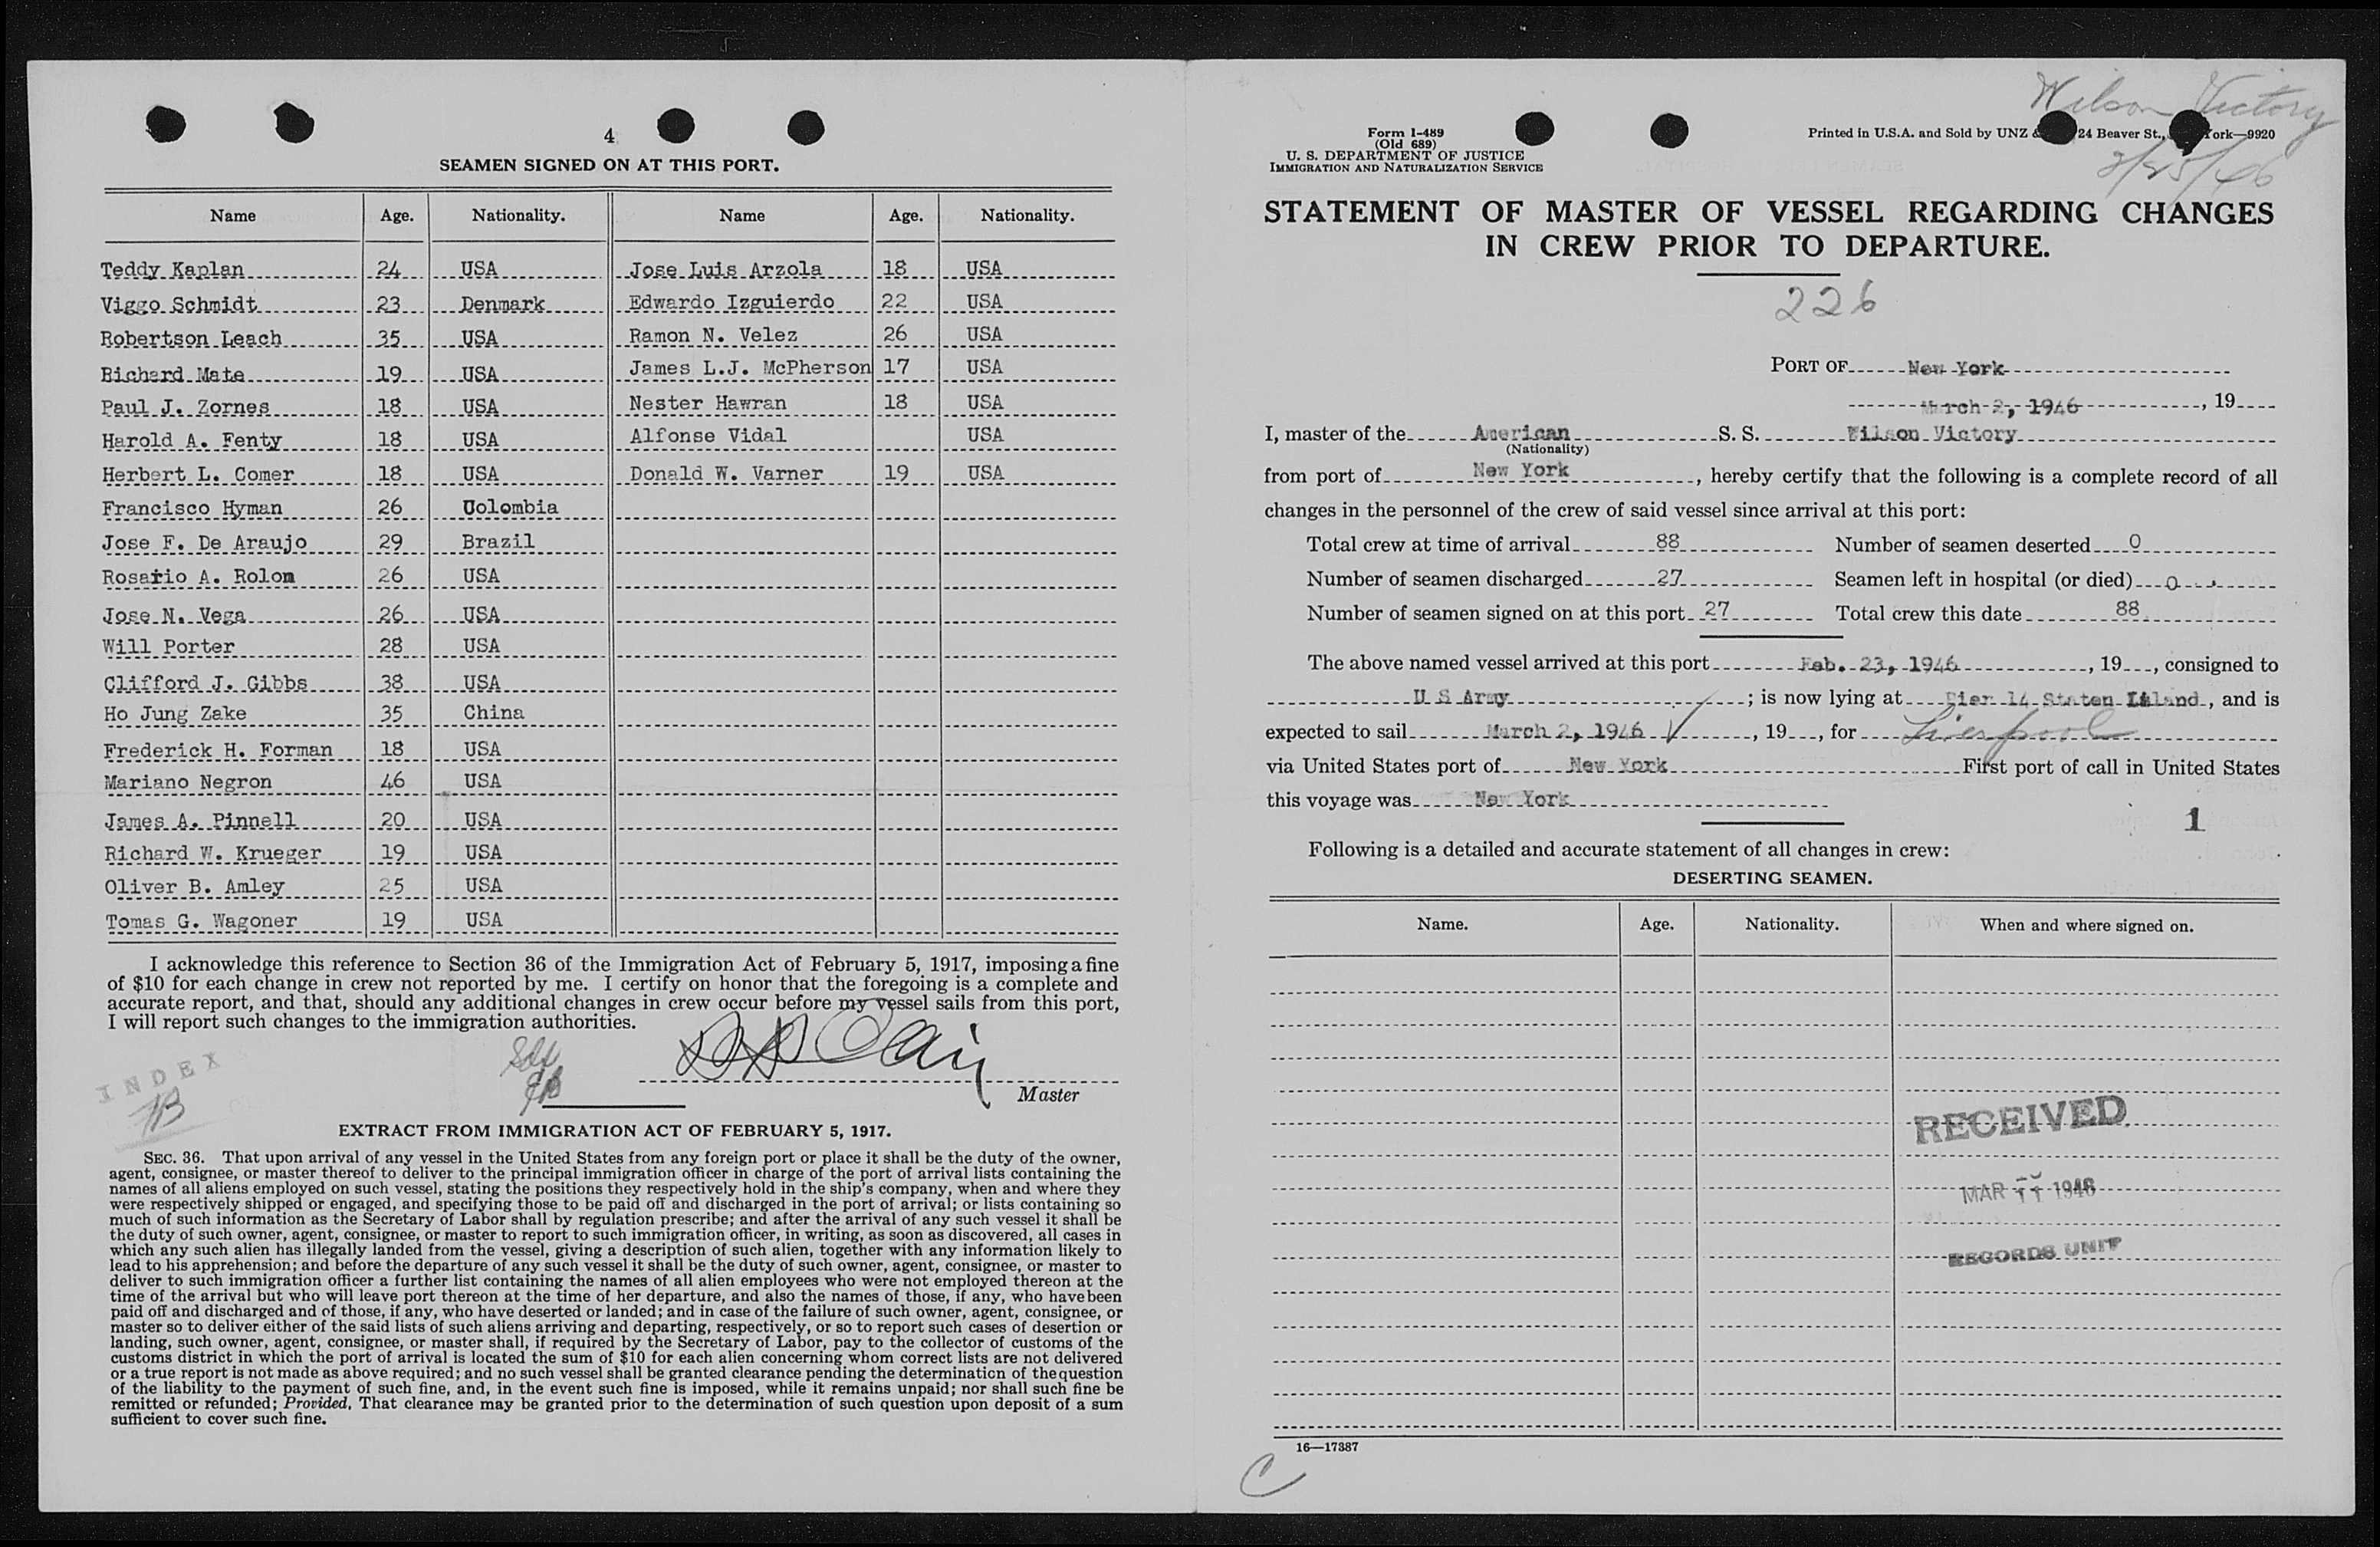 4
SEAMEN SIGNED ON AT THIS PORT.
Name Age. Nationality. Name Age. Nationality.
Teddy Kaplan 24 USA Jose Luis Arzola 18 USA
Viggo Schmidt 23 Denmark Edwardo Izguierdo 22 USA
Robertson Leach 35 USA Ramon N. Velez 26 USA
Richard Mate 19 USA James L.J. McPherson 17 USA
Paul J. Zornes 18 USA Nester Hawran 18 USA
Harold A. Fenty 18 USA Alfonse Vidal USA
Herbert L. Comer 18 USA Donald W. Varner 19 USA
Francisco Hyman 26 Colombia
Jose F. De Araujo 29 Brazil
Rosario A. Rolon 26 USA
Jose N. Vega 26 USA
Will Porter 28 USA
Clifford J. Gibbs 38 USA
Ho Jung Zake 35 China
Frederick H. Forman 18 USA
Mariano Negron 46 USA
James A. Pinnell 20 USA
Richard W. Krueger 19 USA
Oliver B. Amley 25 USA
Tomas G. Wagoner 19 USA
I acknowledge this reference to Section 36 of the Immigration Act of February 5, 1917, imposing a fine
of $10 for each change in crew not reported by me. I certify on honor that the foregoing is a complete and
accurate report, and that, should any additional changes in crew occur before my vessel sails from this port,
I will report such changes to the immigration authorities.
INDEX
Master
EXTRACT FROM IMMIGRATION ACT OF FEBRUARY 5, 1917.
SEC. 36. That upon arrival of any vessel in the United States from any foreign port or place it shall be the duty of the owner,
agent, consignee, or master thereof to deliver to the principal immigration officer in charge of the port of arrival lists containing the
names of all aliens employed on such vessel, stating the positions they respectively hold in the ship's company, when and where they
were respectively shipped or engaged, and specifying those to be paid off and discharged in the port of arrival; or lists containing so
much of such information as the Secretary of Labor shall by regulation prescribe; and after the arrival of any such vessel it shall be
the duty of such owner, agent, consignee, or master to report to such immigration officer, in writing, as soon as discovered, all cases in
which any such alien has illegally landed from the vessel, giving a description of such alien, together with any information likely to
lead to his apprehension; and before the departure of any such vessel it shall be the duty of such owner, agent, consignee, or master to
deliver to such immigration officer a further list containing the names of all alien employees who were not employed thereon at the
time of the arrival but who will leave port thereon at the time of her departure, and also the names of those, if any, who have been
paid off and discharged and of those, if any, who have deserted or landed; and in case of the failure of such owner, agent, consignee, or
master so to deliver either of the said lists of such aliens arriving and departing, respectively, or so to report such cases of desertion or
landing, such owner, agent, consignee, or master shall, if required by the Secretary of Labor, pay to the collector of customs of the
customs district in which the port of arrival is located the sum of $10 for each alien concerning whom correct lists are not delivered
or a true report is not made as above required; and no such vessel shall be granted clearance pending the determination of the question
of the liability to the payment of such fine, and, in the event such fine is imposed, while it remains unpaid; nor shall such fine be
remitted or refunded; Provided, That clearance may be granted prior to the determination of such question upon deposit of a sum
sufficient to cover such fine.
Wilson Victory
Form I-489
(Old 689)
U. S. DEPARTMENT OF JUSTICE
IMMIGRATION AND NATURALIZATION SERVICE
Printed in U.S.A. and Sold by UNZ & 24 Beaver St., ork—9920
STATEMENT OF MASTER OF VESSEL REGARDING CHANGES
IN CREW PRIOR TO DEPARTURE.
226
PORT OF New York
March 2, 1946, 19
I, master of the American S. S. Wilson Victory
(Nationality)
from port of New York, hereby certify that the following is a complete record of all
changes in the personnel of the crew of said vessel since arrival at this port:
Total crew at time of arrival 88 Number of seamen deserted 0
Number of seamen discharged 27 Seamen left in hospital (or died) 0
Number of seamen signed on at this port 27 Total crew this date 88
The above named vessel arrived at this port Feb. 23, 1946, 19, consigned to
U S Army; is now lying at Pier 14 Staten Island, and is
expected to sail March 2, 1946, 19, for Liverpool
via United States port of New York First port of call in United States
this voyage was New York
1
Following is a detailed and accurate statement of all changes in crew:
DESERTING SEAMEN.
Name. Age. Nationality. When and where signed on.
RECEIVED
MAR 11 1946
RECORDS UNIT
16—17387
C